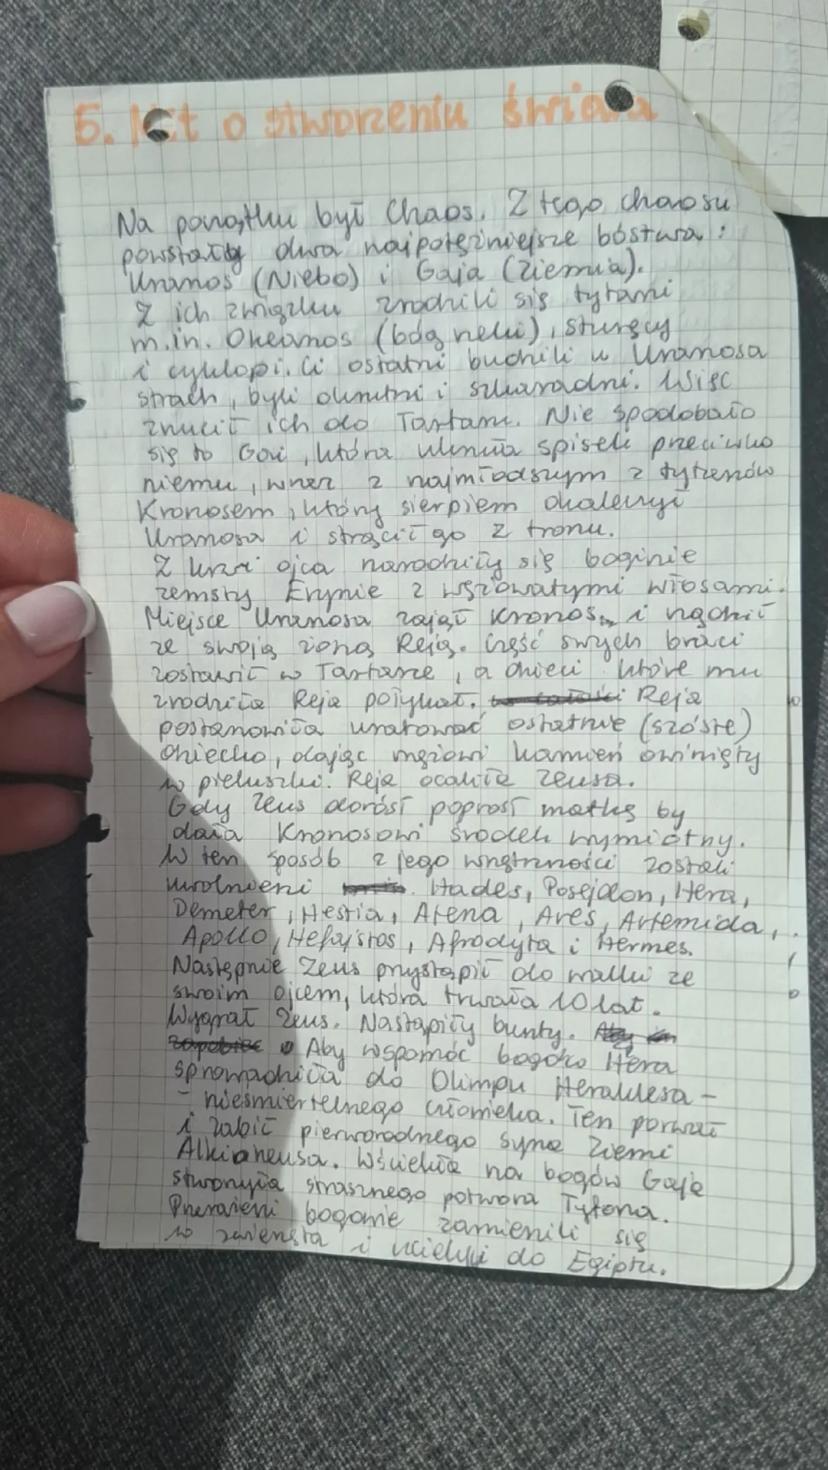 5. Mit o stworzeniu świata
Na początku był Chaos. Z tego chaosu
powstały dwa najpotężniejsze bóstwa:
Uranos (Niebo) i Gaja (Ziemia).
Z ich związku zrodzili się tytani
m.in. Okeanos (bóg rzeki), sturęcy
i cyklopi. Ci ostatni budzili w Uranosa
strach, byli okrutni i szkaradni. Więc
zrzucił ich do Tartaru. Nie spodobało
się to Gai, która uknuła spisek przeciwko
niemu, wraz z najmłodszym z tytanów
Kronosem, który sierpiem okaleczył
Uranosa i strącił go z tronu.
Z krwi ojca narodziły się boginie
zemsty Erynie z wężowatymi włosami.
Miejsce Uranosa zajął Kronos i rządził
ze swoją żoną Reją. Część swych braci
zostawił w Tartarze, a dzieci które mu
zrodziła Reja połykał. Reja
postanowiła uratować ostatnie (szóste)
dziecko, dając mężowi kamień owinięty
w pieluszki. Reja ocaliła Zeusa.
Gdy Zeus dorósł poprosł matkę by
dała Kronosowi środek wymiotny.
W ten sposób z jego wnętrzności zostali
uwolnieni Hades, Posejdon, Hera,
Demeter, Hestia, Atena, Ares, Artemida,
Apollo, Hefajstos, Afrodyta i Hermes.
Następnie Zeus przystąpił do walki ze
swoim ojcem, która trwała 10 lat.
Wygrał Zeus. Nastąpiły bunty.
Aby wspomóc bogów Hera
sprowadziła do Olimpu Heraklesa -
- nieśmiertelnego człowieka. Ten porwał
i zabił pierworodnego syna Ziemi
Alkioneusa. Wściekła na bogów Gaja
stworzyła strasznego potwora Tyfona.
Przerażeni bogowie zamienili się
w zwierzęta i uciekli do Egiptu.